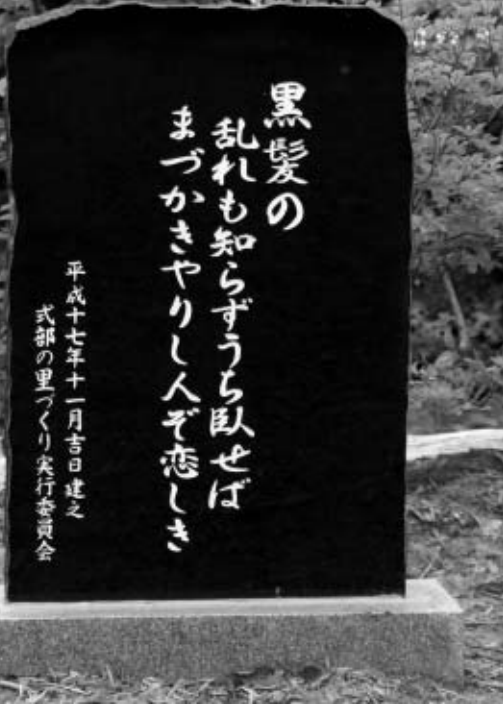 黒髪の
乱れも知らずうち臥せば
まづかきやりし人ぞ恋しき
平成十七年十一月吉日建之
式部の里づくり実行委員会